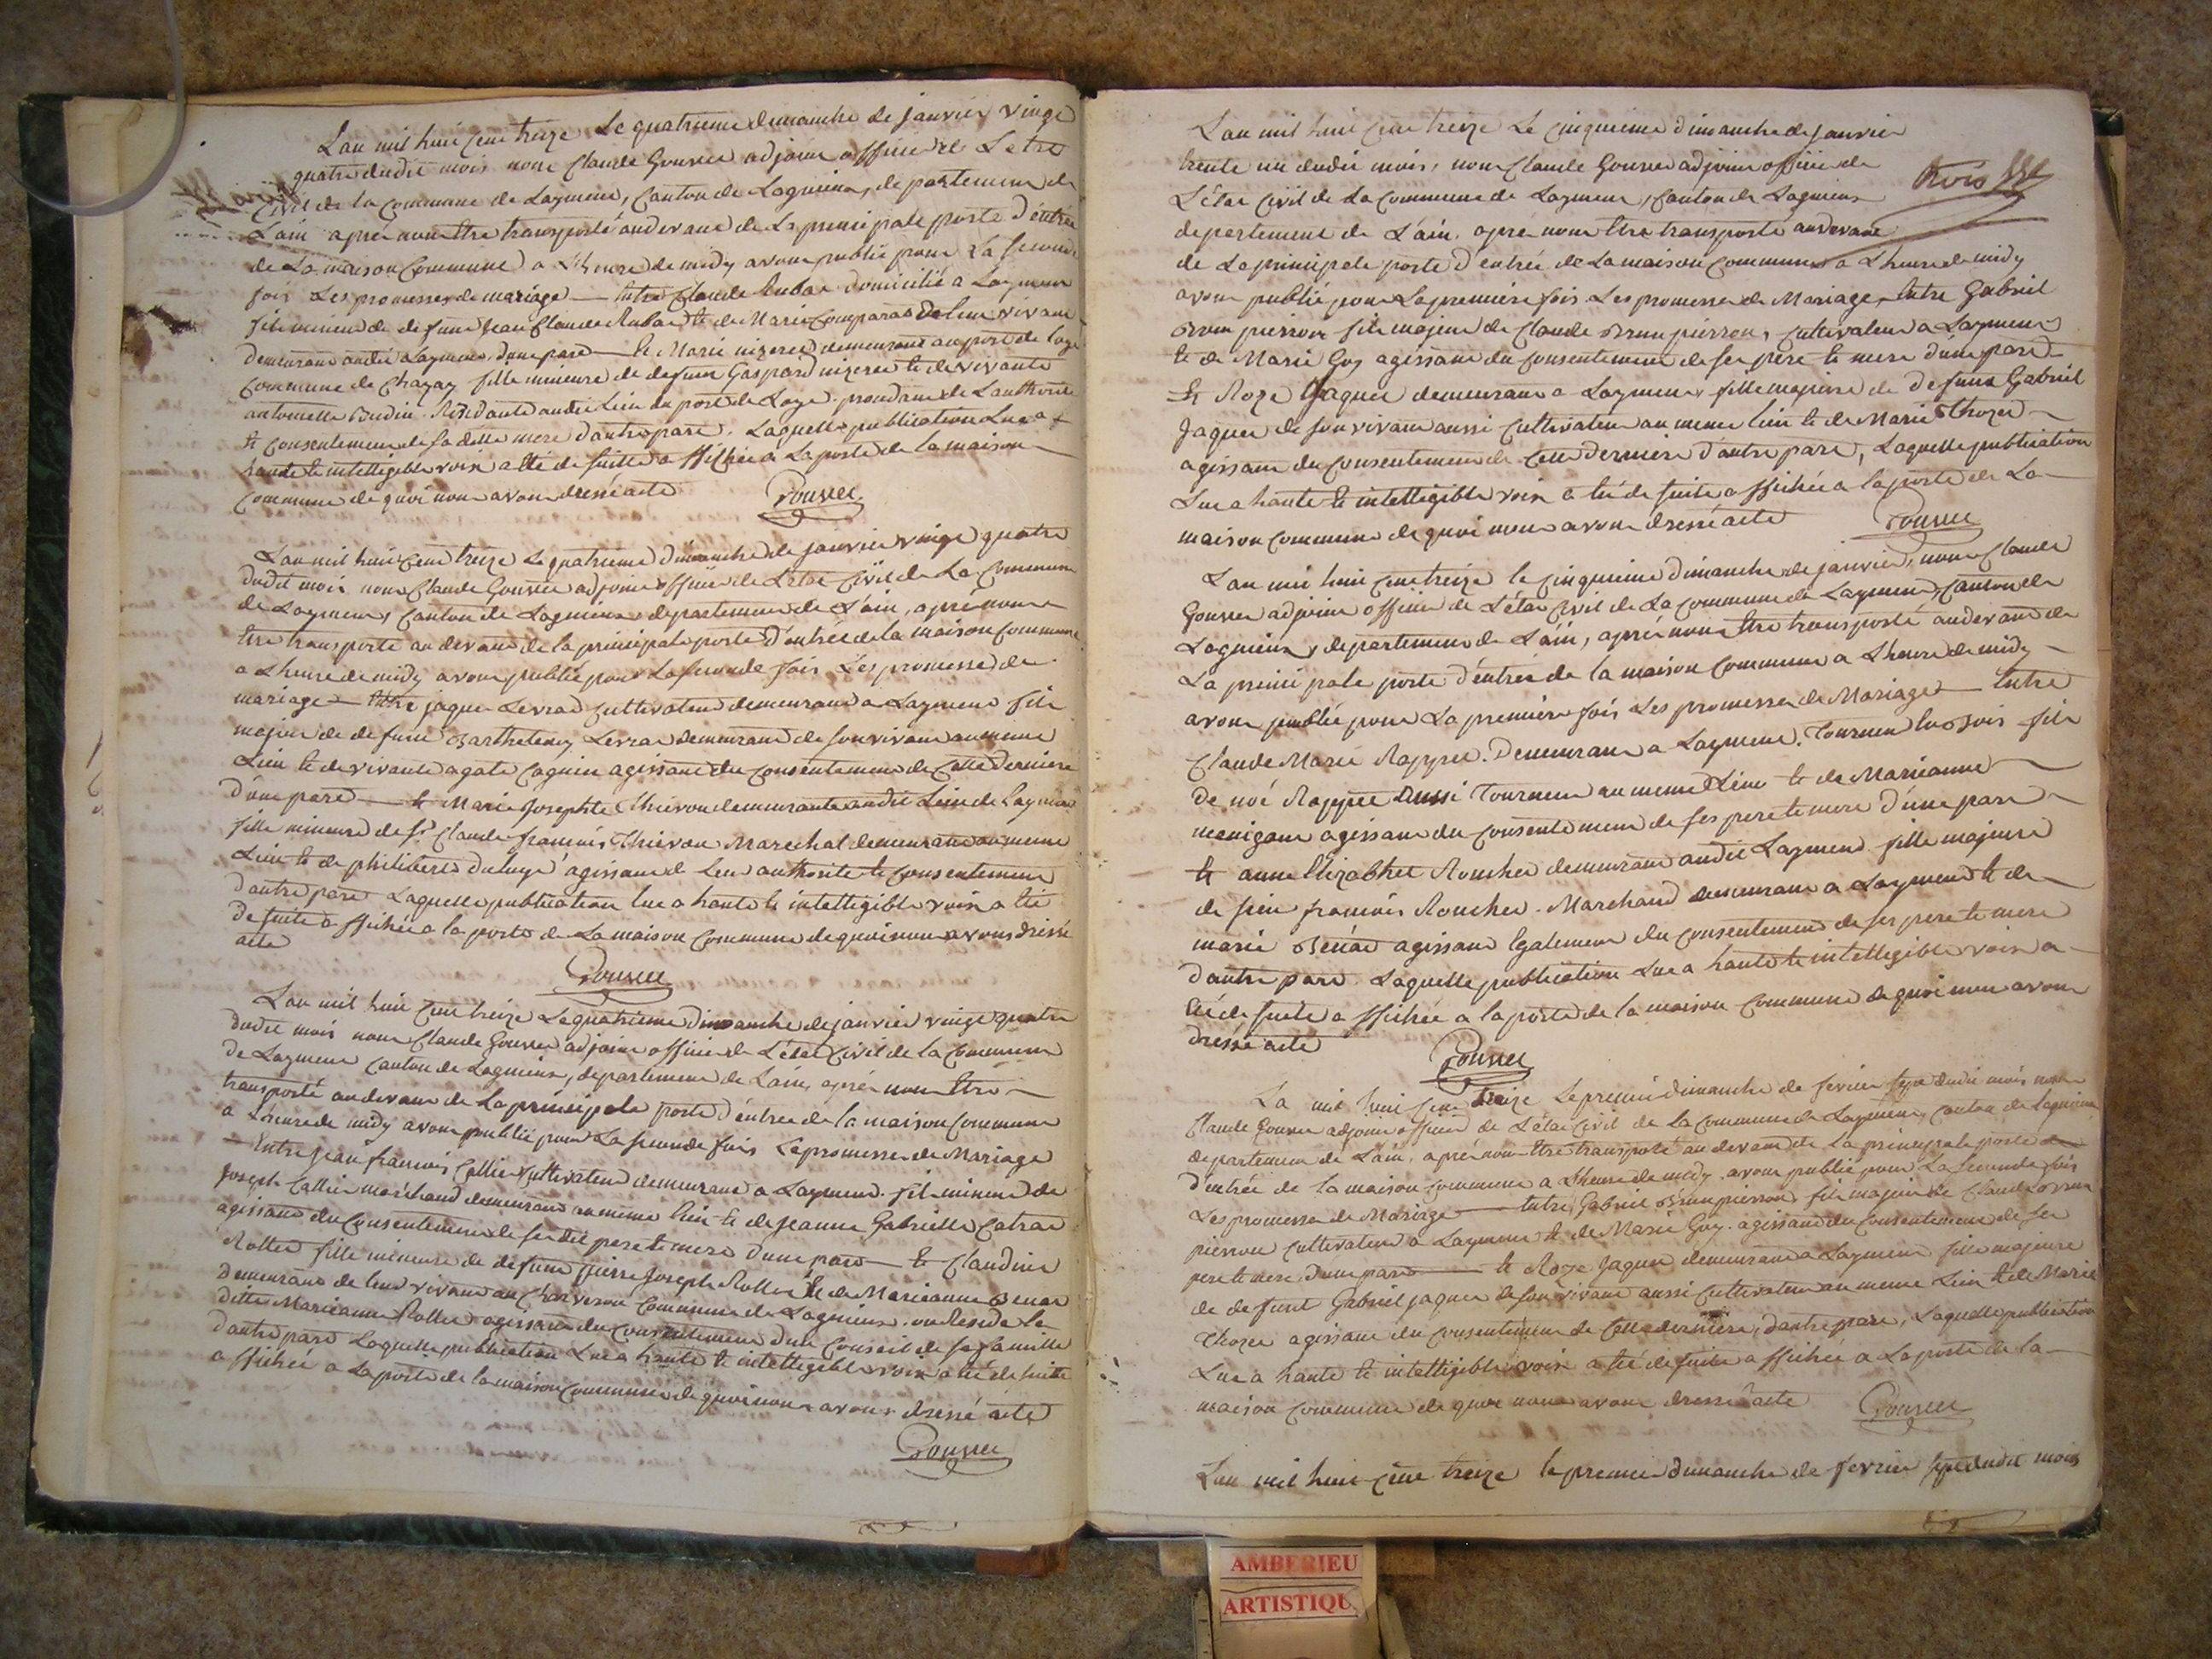 L'an mil huit cent treize Le quatrieme dimanche de janvier vingt
quatre dudit mois nous Claude Gouvier adjoint officier de L'etat
Civil de la commune de Laymeux, Canton de Lagnieux, departement de
L'ain aprés nous être transporté audevant de La principale porte d'entrée
de La maison Commune a L'heure de midy avons publié pour La seconde
fois Les promesses de mariage — Entre Claude domicilié a Laymeux
fils mineur de defunt Jean Claude et de Marie de leur vivant
demeurant audit Laymeux d'une part — et Marie demeurant au port de Loye
Commune de Chazay fille mineure de defunt Gaspard et de vivante
antoinette Residante audit Lieu du port de Loye. de L'authorité
et consentement de sa ditte mere d'autre part. Laquelle publication Lue a
haute et intelligible voix a été de suitte affichée a La porte de la maison
Commune de quoi nous avons dressé acte
L'an mil huit cent treize Le quatrieme dimanche de janvier vingt quatre
dudit mois nous Claude Gouvier adjoint officier de L'état Civil de La Commune
de Laymeux, Canton de Lagnieux departement de L'ain, aprés nous
être transporté au devant de la principale porte d'entrée de la maison commune
a L'heure de midy avons publié pour La seconde fois Les promesses de
mariage — Entre jaques Levrat Cultivateur demeurant a Laymeux fils
majeur de defunt Barthelemy Levrat demeurant de son vivant au meme
Lieu et de vivante agate agissant du consentement de Cette Derniere
d'une part — et Marie Josephte Thievon demeurante audit Lieu de Laymeux
fille mineure de Sr Claude françois Thievon Marechal demeurant au meme
Lieu et de philiberte agissant de leur authorité et consentement
d'autre part Laquelle publication lue a haute et intelligible voix a été
de suite affichée a la porte de La maison Commune de quoi nous avons dressé
acte
L'an mil huit Cent treize Le quatrieme dimanche de janvier vingt quatre
dudit mois nous Claude Gouvier adjoint officier de L'état Civil de la Commune
de Laymeux Canton de Lagnieux, departement de L'ain, aprés nous être
transporté audevant de La principale porte d'entrée de la maison Commune
a L'heure de midy avons publié pour La seconde fois Les promesses de Mariage
— Entre Jean françois Cultivateur demeurant a Laymeux. fils mineur de
Joseph marchand demeurant au même lieu et de jeanne Gabrielle
agissant du Consentement de ses dit pere et mere d'une part — et Claudine
Rollet fille mineure de defunt pierre Joseph Rollet et de Marieanne Benat
demeurant de leur vivant au Commune de Lagnieux. ou Reside la
ditte Marieanne Rollet agissant du Consentement d'un Conseil de famille
d'autre part Laquelle publication Lue a haute et intelligible voix a été de suitte
affichée a La porte de la maison Commune de quoi nous avons dressé acte
L'an mil huit Cent treize Le Cinquieme dimanche de janvier
trente un dudit mois, nous Claude Gouvier adjoint officier de
L'état Civil de La Commune de Laymeux, canton de Lagnieux
departement de L'ain. aprés nous être transporté audevant
de La principale porte d'entrée de La maison Commune a L'heure de midy
avons publié pour La premiere fois Les promesses de Mariage, Entre Gabriel
Brun pierron fils majeur de Claude Brun pierron, Cultivateur a Laymeux
et de Marie Guy agissant du Consentement de ses pere et mere d'une part
Et Roze Jaquet demeurant a Laymeux fille majeure de Defunt Gabriel
Jaquet de son vivant aussi Cultivateur au meme lieu et de Marie Thozet
agissant du Consentement de Cette Derniere d'autre part, Laquelle publication
Lue a haute et intelligible voix a été de suite affichée a la porte de La
maison Commune de quoi nous avons dressé acte
L'an mil huit Cent treize le Cinquieme dimanche de janvier, nous Claude
Gouvier adjoint officier de L'état Civil de La Commune de Laymeux, Canton de
Lagnieux, departement de L'ain, aprés nous être transporté audevant de
La principale porte d'entrée de la maison Commune a L'heure de midy
avons publié pour La premiere fois Les promesses de Mariage — Entre
Claude Marie Rappet. Demeurant a Laymeux. Tourneur en Bois fils
de noé Rappet Aussi Tourneur au meme Lieu et de Marieanne
agissant du Consentement de ses pere et mere d'une part
et anne Elizabhet Roucher demeurant audit Laymeux fille majeure
de sieur françois Roucher. Marchand demeurant a Laymeux et de
marie Benat agissant Egalement du Consentement de ses pere et mere
d'autre part. Laquelle publication Lue a haute et intelligible voix a
été de suite affichée a la porte de la maison Commune de quoi nous avons
dressé acte
La mil huit Cent treize Le premier dimanche de fevrier sept dudit mois nous
Claude Gouvier adjoint officier de L'état Civil de la Commune de Laymeux, Canton de Lagnieux
departement de L'ain, aprés nous être transporté audevant de La principale porte
d'entrée de la maison Commune a L'heure de midy. avons publié pour La seconde fois
Les promesses de Mariage — Entre Gabriel Brun pierron fils majeur de Claude Brun
pierron Cultivateur a Laymeux et de Marie Guy. agissant du Consentement de ses
pere et mere, d'une part — et Roze Jaquet demeurant a Laymeux fille majeure
de defunt Gabriel jaquet de son vivant aussi Cultivateur au meme Lieu et de Marie
Thozet agissant du Consentement de Cette derniere, d'autre part, Laquelle publication
Lue a haute et intelligible voix a été de suite affichée a La porte de la
maison Commune de quoi nous avons dressé acte
L'an mil huit Cent treize le premier dimanche de fevrier sept dudit mois
AMBERIEU
ARTISTIQU